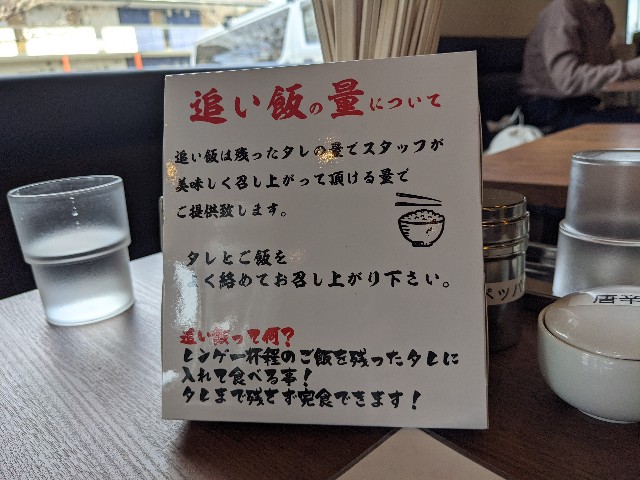 追い飯の量について
追い飯は残ったタレの量でスタッフが
美味しく召し上がって頂ける量で
ご提供致します。
タレとご飯を
よく絡めてお召し上がり下さい。
追い飯って何?
レンゲ一杯程のご飯を残ったタレに
入れて食べる事!
タレまで残さず完食できます!
ペッパ
唐辛